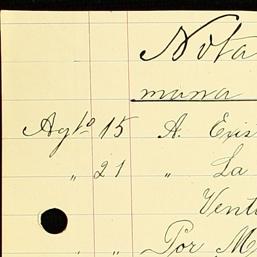 Nota
mana
Agto 15 A. Exis
" 21 " La
Vent
" " Por M